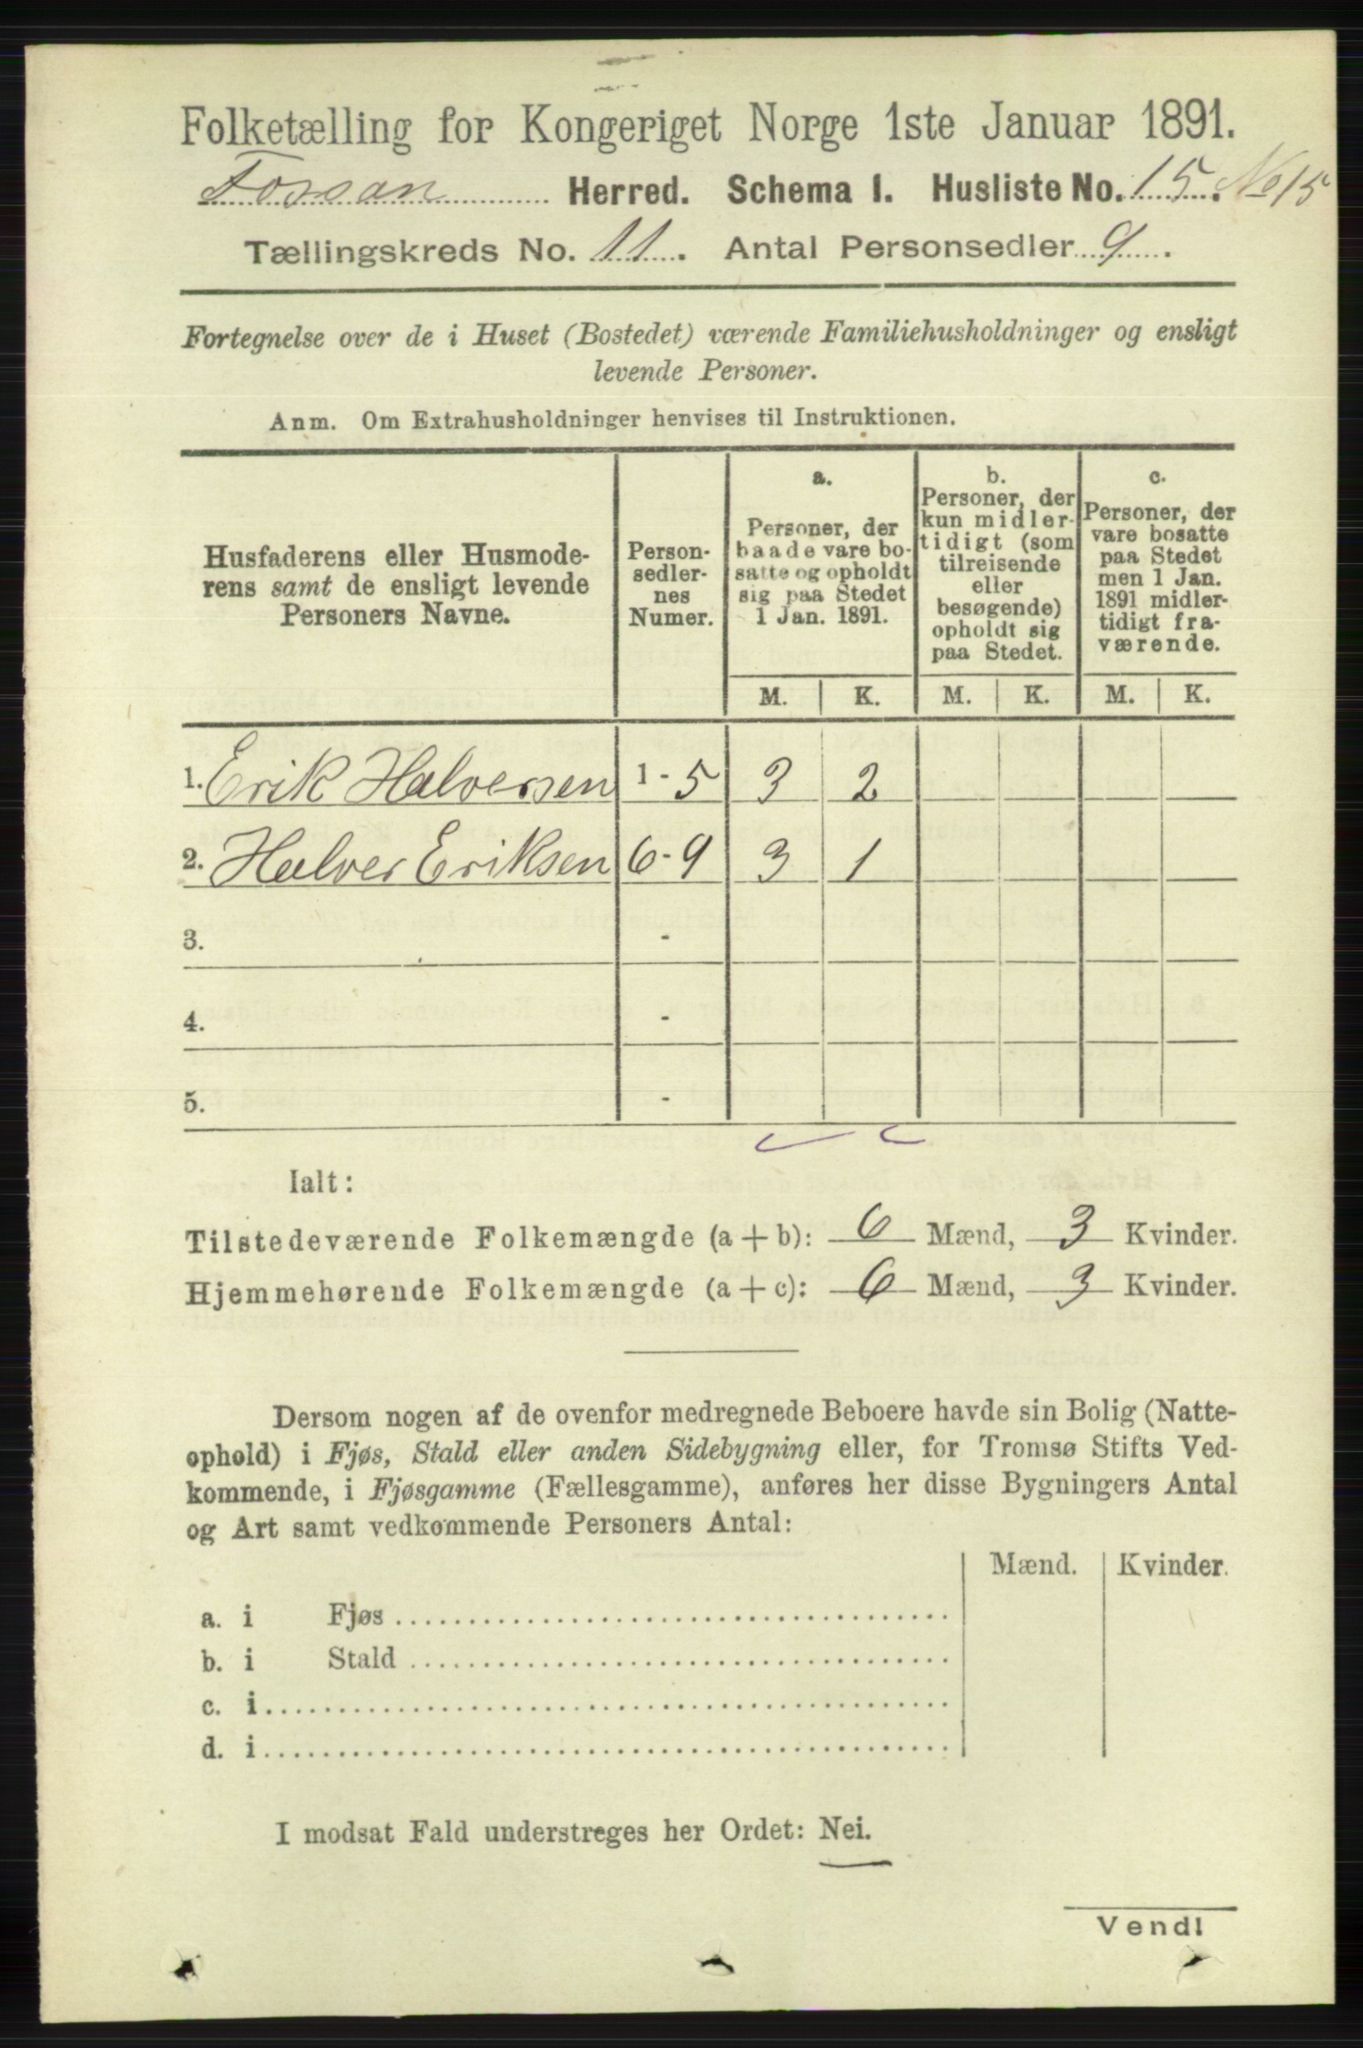 Folketælling for Kongeriget Norge 1ste Januar 1891.
Fossan Herred. Schema I. Husliste No. 15. No 15
Tællingskreds No. 11. Antal Personsedler 9.
Fortegnelse over de i Huset (Bostedet) værende Familiehusholdninger og ensligt
levende Personer.
Anm. Om Extrahusholdninger henvises til Instruktionen.
Husfaderens eller Husmode-
rens samt de ensligt levende
Personers Navne.
Person-
sedler-
nes
Numer.
a.
Personer, der
baade vare bo-
satte og opholdt
sig paa Stedet
1 Jan. 1891.
b.
Personer, der
kun midler-
tidigt (som
tilreisende
eller
besøgende)
opholdt sig
paa Stedet.
c.
Personer, der
vare bosatte
paa Stedet
men 1 Jan.
1891 midler-
tidigt fra-
værende.
M. K. M. K. M. K.
1. Erik Halversen 1-5 3 2
2. Halver Eriksen 6-9 3 1
3. -
4. -
5. -
Ialt:
Tilstedeværende Folkemængde (a + b): 6 Mænd, 3 Kvinder.
Hjemmehørende Folkemængde (a + c): 6 Mænd, 3 Kvinder.
Dersom nogen af de ovenfor medregnede Beboere havde sin Bolig (Natte-
ophold) i Fjøs, Stald eller anden Sidebygning eller, for Tromsø Stifts Ved-
kommende, i Fjøsgamme (Fællesgamme), anføres her disse Bygningers Antal
og Art samt vedkommende Personers Antal:
Mænd. Kvinder.
a. i Fjøs
b. i Stald
c. i
d. i
I modsat Fald understreges her Ordet: Nei.
Vend!